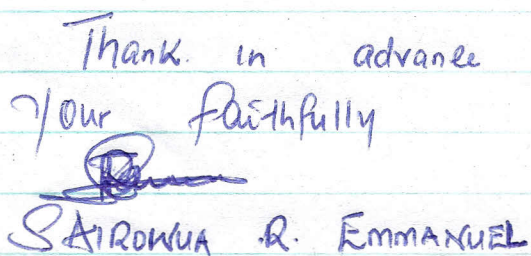 Thank in advance
Your faithfully
SAIROWUA .R. EMMANUEL